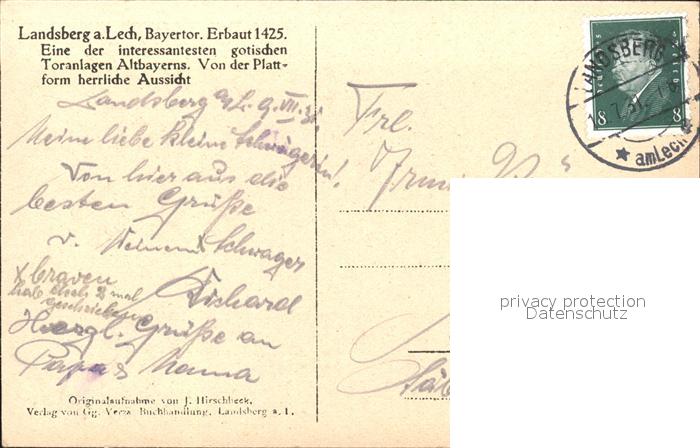 Landsberg a. Lech, Bayertor. Erbaut 1425.
Eine der interessantesten gotischen
Toranlagen Altbayerns. Von der Platt-
form herrliche Aussicht
Landsberg a/L. 9. VII. 31.
Meine liebe kleine Schwägerin!
Von hier aus die
besten Grüße
v. Deinem Schwager
x braven
Richard
hab doch 2 mal
geschrieben
Herzl. Grüße an
Papa & Mama
Originalaufnahme von J. Hirschbeck.
Verlag von Gg. Verza Buchhandlung, Landsberg a. L.
Frl.
LANDSBERG
am Lech
8 8
privacy protection
Datenschutz